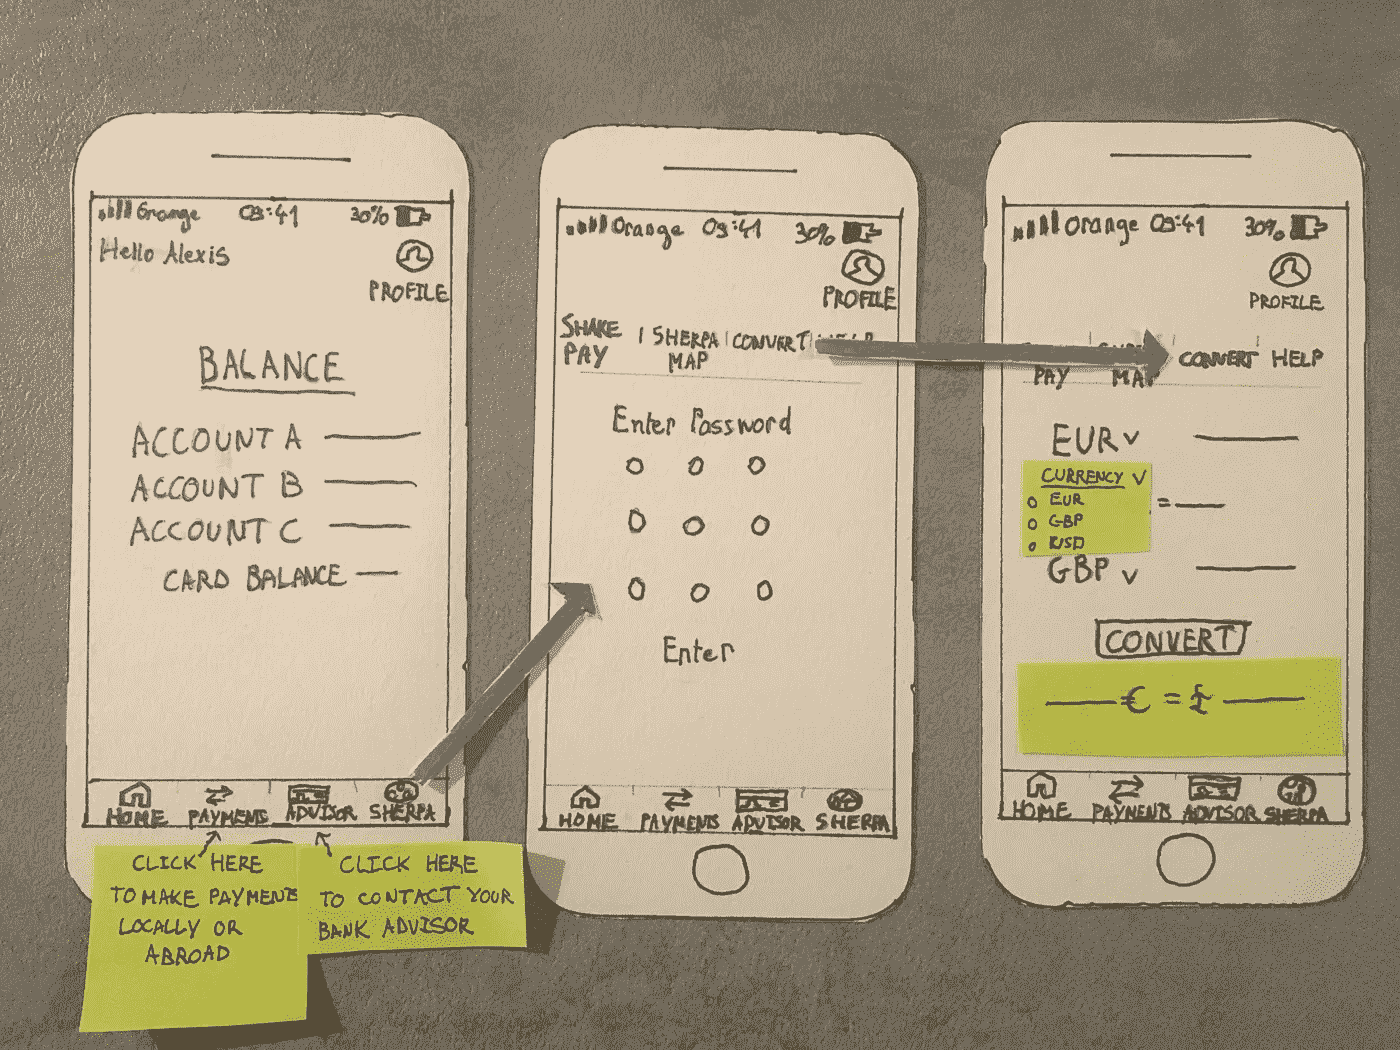 Orange 09:41 30%
Hello Alexis
PROFILE
BALANCE
ACCOUNT A
ACCOUNT B
ACCOUNT C
CARD BALANCE
HOME PAYMENTS ADVISOR SHERPA
CLICK HERE
TO MAKE PAYMENTS
LOCALLY OR
ABROAD
CLICK HERE
TO CONTACT YOUR
BANK ADVISOR
Orange 09:41 30%
PROFILE
SHAKE PAY | SHERPA MAP | CONVERT |
Enter Password
Enter
HOME PAYMENTS ADVISOR SHERPA
Orange 09:41 30%
PROFILE
PAY MAP CONVERT HELP
EUR
CURRENCY
EUR
GBP
USD
=
GBP
CONVERT
€ = £
HOME PAYMENTS ADVISOR SHERPA